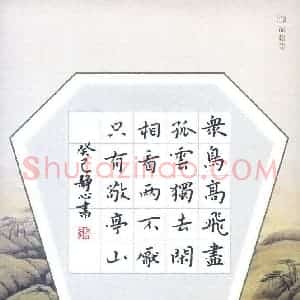 眾鳥高飛盡
孤雲獨去閑
相看兩不厭
只有敬亭山
癸巳靜心書
Shufazidao.com